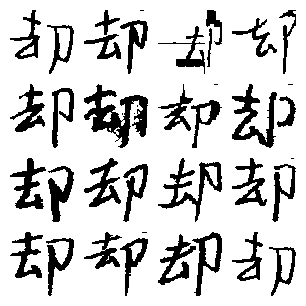 却却却却
却却却却
却却却却
却却却却